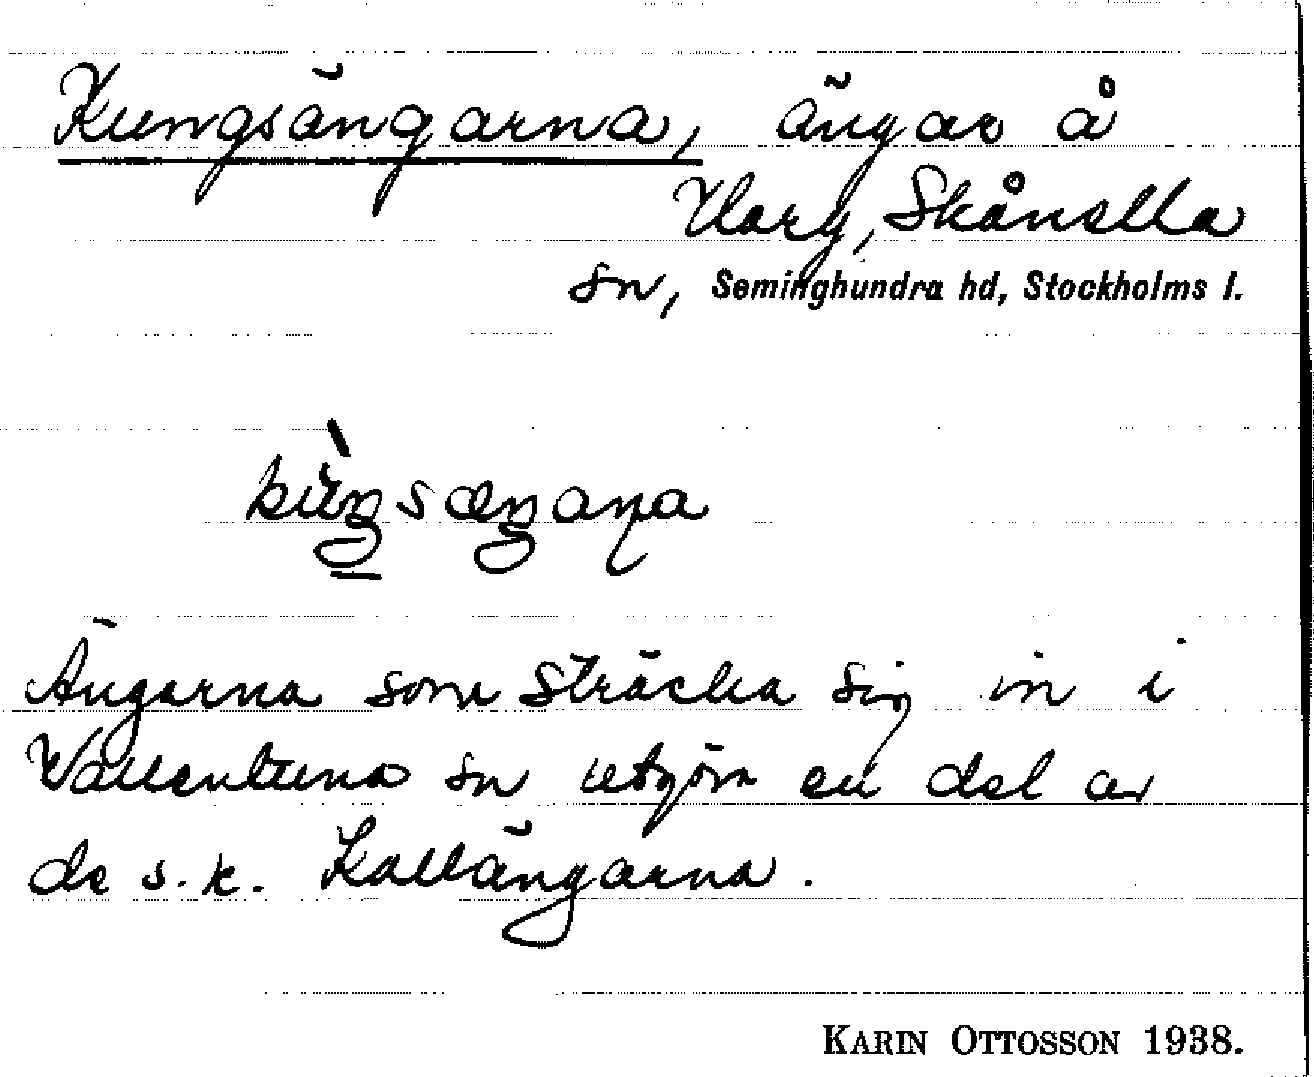 Kungsängarna, ängar å
Harg, Skånella
sn, Seminghundra hd, Stockholms l.
Ängarna som sträcka sig in i
Wallentuna sn utgöra en del av
de s.k. Kallängarna.
KARIN OTTOSSON 1938.